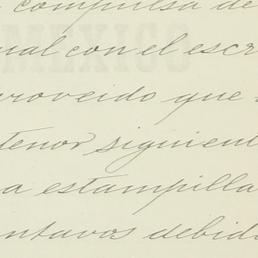 compulsa de
ual con el escr
MEXICO
proveido que
tenor siguient
a estampilla
ntavos debid